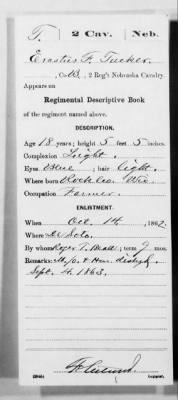 T. | 2 Cav. | Neb.
Erastus F. Tucker.
, Co. B, 2 Reg't Nebraska Cavalry.
Appears on
Regimental Descriptive Book
of the regiment named above.
DESCRIPTION.
Age 18 years; height 5 feet 5 inches.
Complexion Light.
Eyes Blue; hair light.
Where born
Occupation Farmer.
ENLISTMENT.
When Oct. 14, 1862.
Where De Soto.
By whom Roger T. Beall; term 9 mos.
Remarks: M. O. & Hon. dischgd.
Sept. 4. 1863.
Copyist.